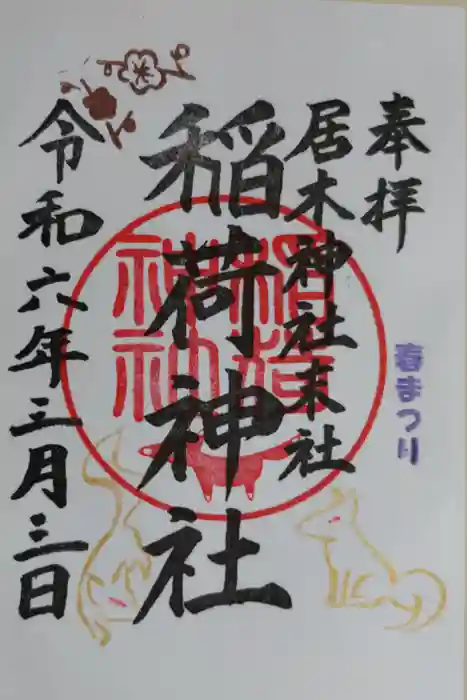 奉拝
春まつり
居木神社末社
稲荷神社
令和六年三月三日